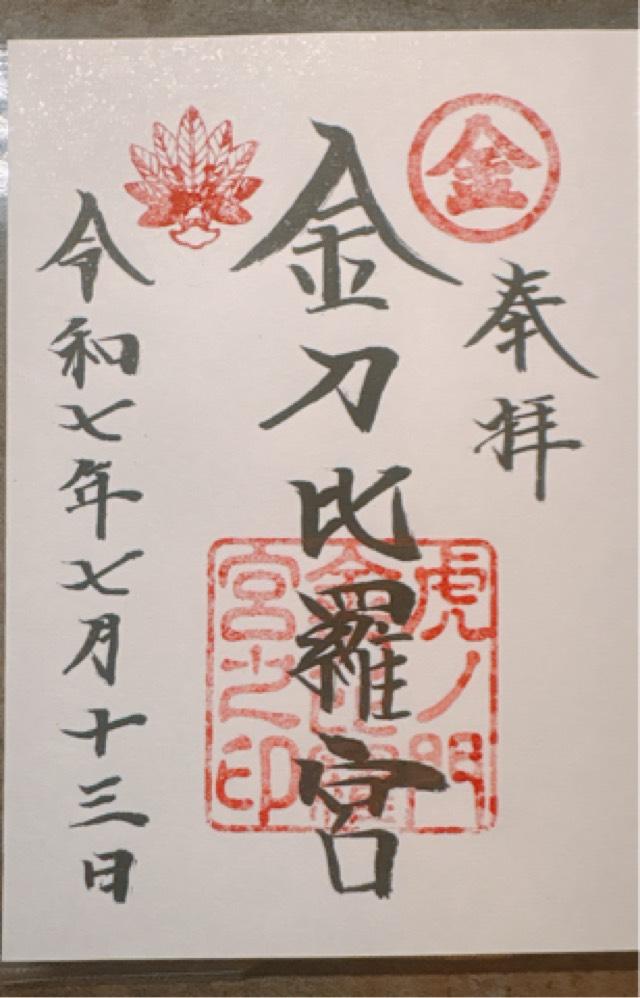 金
奉拝
金刀比羅宮
虎ノ門
金刀比羅
宮之印
令和七年七月十三日